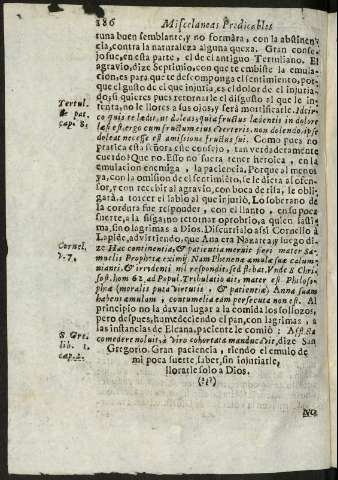 186 Miscelaneas Predicables
tuna buen semblante, y no formàra, con la abstinen-
cia, contra la naturaleza alguna quexa. Gran conse-
jo fue, en esta parte, el de el antiguo Tertuliano. El
agravio, dize Septimio, con que te embiste la emula-
cion, es para que te descomponga el sentimiento, por-
que el gusto de el que injuria, es el dolor de el injuria-
do, si quieres pues retornarle el disgusto al que le in-
tenta, no le llores a sus ojos, y será mortificarle. Idcir-
co quis te lædit, ut doleas; quia fructus lædentis in dolore
læsi est, ergo cum fructum eius everteris, non dolendo, ipse
doleat necesse est amisione fructus sui.
Tertul.
de pat.
cap. 8.
Como pues no
pratica esta señora esse consejo, tan verdaderamente
cuerdo? Que no. Esso no fuera tener heroica, en la
emulacion enemiga, la paciencia. Porque al menos
ya, con la omision de el sentimiẽto, le dieta al ofen-
sor, y con recebir al agravio, con boca de risa, le obli-
gará a torcer el labio al que injuriò. Lo soberano de
la cordura fue responder, con el llanto, en su poca
suerte, a la
no retornar oprobrio, a quien lasti-
ma, sino lagrimas a Dios. Discurriòlo assi Cornelio à
Lapide, advirtiendo, que Ana era Nazarea; y luego di-
ze: Hac continentia, & patientia meruit fieri mater Sa-
muelis Prophetæ eximij, Nam Phenenæ æmulæ suæ calum-
nianti, & irridenti nil respondit, sed flebat. Unde S. Chri-
sost. hom. 62. ad Popul. Tribulatio ait, mater est Philoso-
phiæ (moralis puta virtutis, & patientiæ) Anna suam
habens æmulam, contumelia eam persecuta non est.
Cornel.
v. 7.
Al
principio no la davan lugar a la comida los sollozos,
pero despues, humedeciendo el pan, con lagrimas, a
las instancias de Elcana, paciente le comiò:
comedere noluit, à viro cohortata manducavit, dize San
Gregorio. Gran paciencia, riendo el emulo de
mi poca suerte, saber, sin injuriarle,
llorarle solo a Dios.
S. Gre.
lib. 1.
cap. 2.
(?§?)
NO